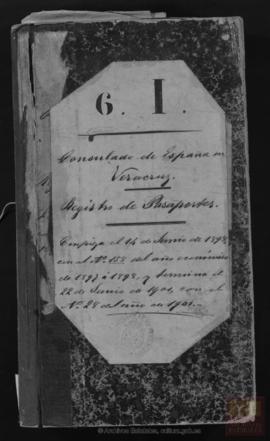 6. I.
Consulado de España en
Veracruz.
Registro de Pasaportes.
Empieza el 14 de Junio de 1898,
con el Nº 158 del año económico
de 1897 á 1898, y termina el
22 de Junio de 1901, con el
Nº 28 del año de 1901.
© Archivos Estatales, cultura.gob.es